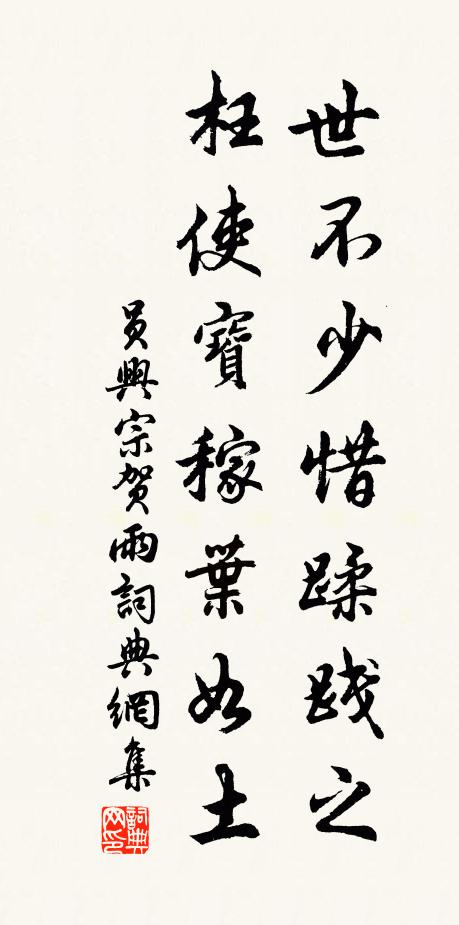 世不少惜蹂踐之
枉使寶稼葉如土
員興宗賀雨詞典網集
詞典网印